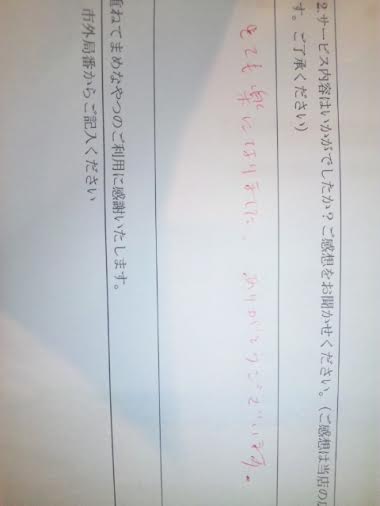 2.サービス内容はいかがでしたか？ご感想をお聞かせください。（ご感想は当店の
す。ご了承ください）
とても楽になりました。ありがとうございます。
重ねてまめなやつのご利用に感謝いたします。
市外局番からご記入ください